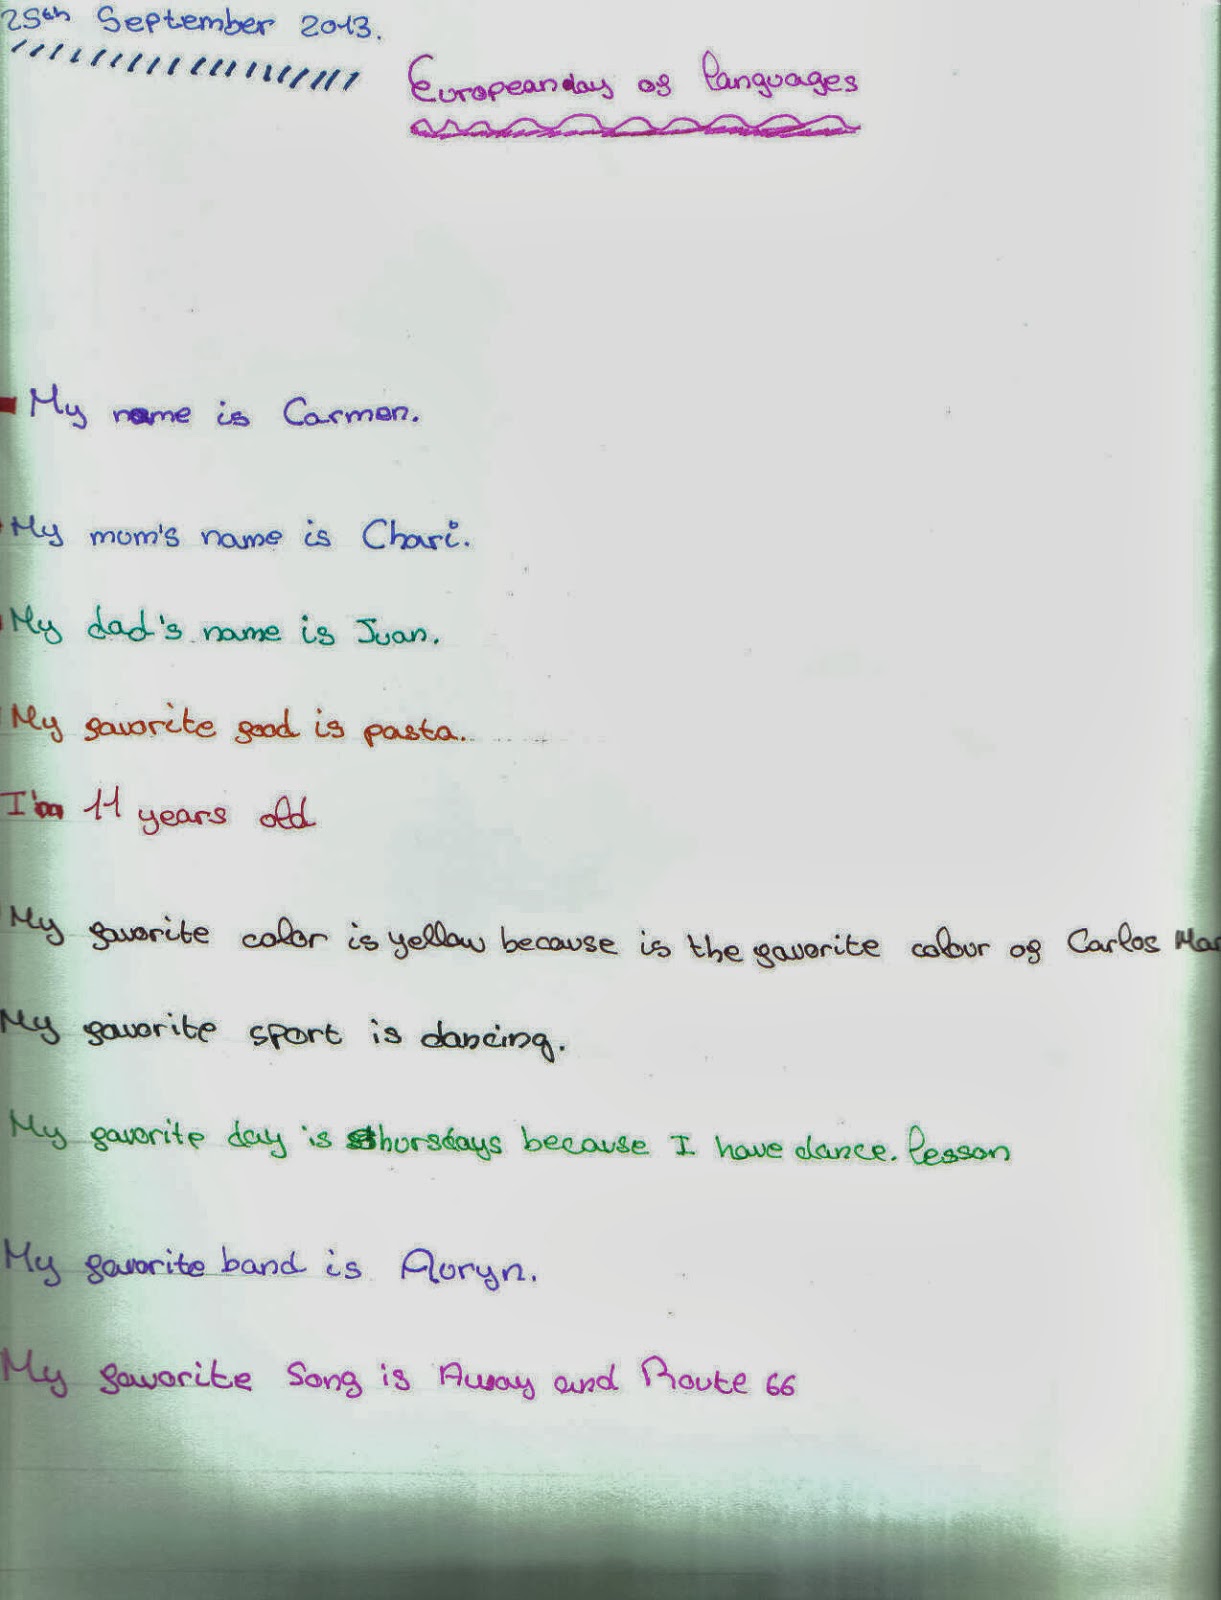 25th September 2013.
Europeanday of languages
My name is Carmen.
My mom's name is Chari.
My dad's name is Juan.
My favorite food is pasta.
I'm 11 years old
My favorite color is yellow because is the favorite colour of Carlos Mar
My favorite sport is dancing.
My favorite day is thursdays because I have dance. lesson
My favorite band is Auryn.
My favorite Song is Away and Route 66